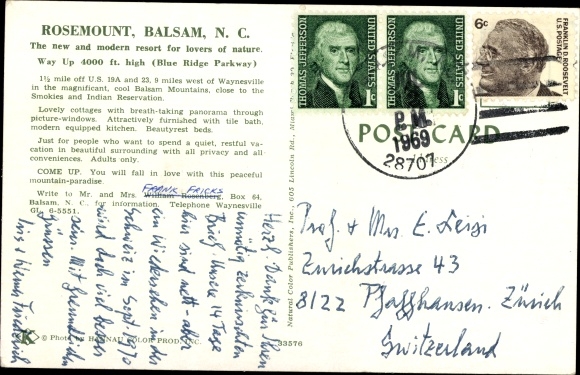 ROSEMOUNT, BALSAM, N. C.
The new and modern resort for lovers of nature.
Way Up 4000 ft. high (Blue Ridge Parkway)
1½ mile off U.S. 19A and 23, 9 miles west of Waynesville
in the magnificent, cool Balsam Mountains, close to the
Smokies and Indian Reservation.
Lovely cottages with breath-taking panorama through
picture-windows. Attractively furnished with tile bath,
modern equipped kitchen. Beautyrest beds.
Just for people who want to spend a quiet, restful va-
cation in beautiful surrounding with all privacy and all
conveniences. Adults only.
COME UP. You will fall in love with this peaceful
mountain-paradise.
FRANK FRICKS
Write to Mr. and Mrs. William Rosenberg, Box 64,
Balsam, N. C., for information. Telephone Waynesville
GL 6-5551.
Herzl. Dank für Ihren
Brief. Unsere 14 Tage
hier sind nett - aber
ein Wiedersehen in der
Schweiz im Sept. 1970
wird doch viel besser
sein. Mit freundlichen
Grüssen
© Photo by HANNAU COLOR PROD. INC.
33576
Natural Color Publishers, Inc., 605 Lincoln Rd., Miami
THOMAS JEFFERSON
UNITED STATES
1c
THOMAS JEFFERSON
UNITED STATES
1c
6c
FRANKLIN D. ROOSEVELT
U.S. POSTAGE
P.M.
1969
28707
POST CARD
Address
Prof. & Mrs. E. Leisi
Zürichstrasse 43
8122 Pfaffhausen. Zürich
Switzerland